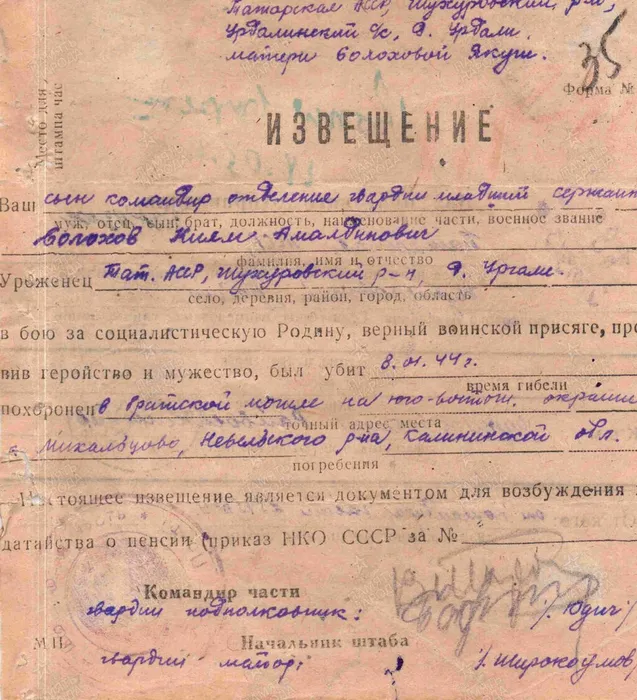 Татарская АССР, Шухуровский р-н,
Урдалинский с/с, д. Урдали.
матери Болоховой Якуш.
35
Форма №
Место для
штампа час
ИЗВЕЩЕНИЕ
Ваш сын командир отделение гвардии младший сержант
муж, отец, сын, брат, должность, наименование части, военное звание
Болохов Амалдинович
фамилия, имя и отчество
Уроженец Тат. АССР, Шухуровский р-н, д. Ургале.
село, деревня, район, город, область
в бою за социалистическую Родину, верный воинской присяге, про
вив геройство и мужество, был убит 8.01.44г.
время гибели
похоронен в братской могиле на юго-восточ. окраине
точный адрес места
Невельского р-на, Калининской обл.
погребения
Настоящее извещение является документом для возбуждения
датайства о пенсии (приказ НКО СССР за №
Командир части
гвардии подполковник: /. Юдич/
М П Начальник штаба
гвардии майор: /. Широкоумов/